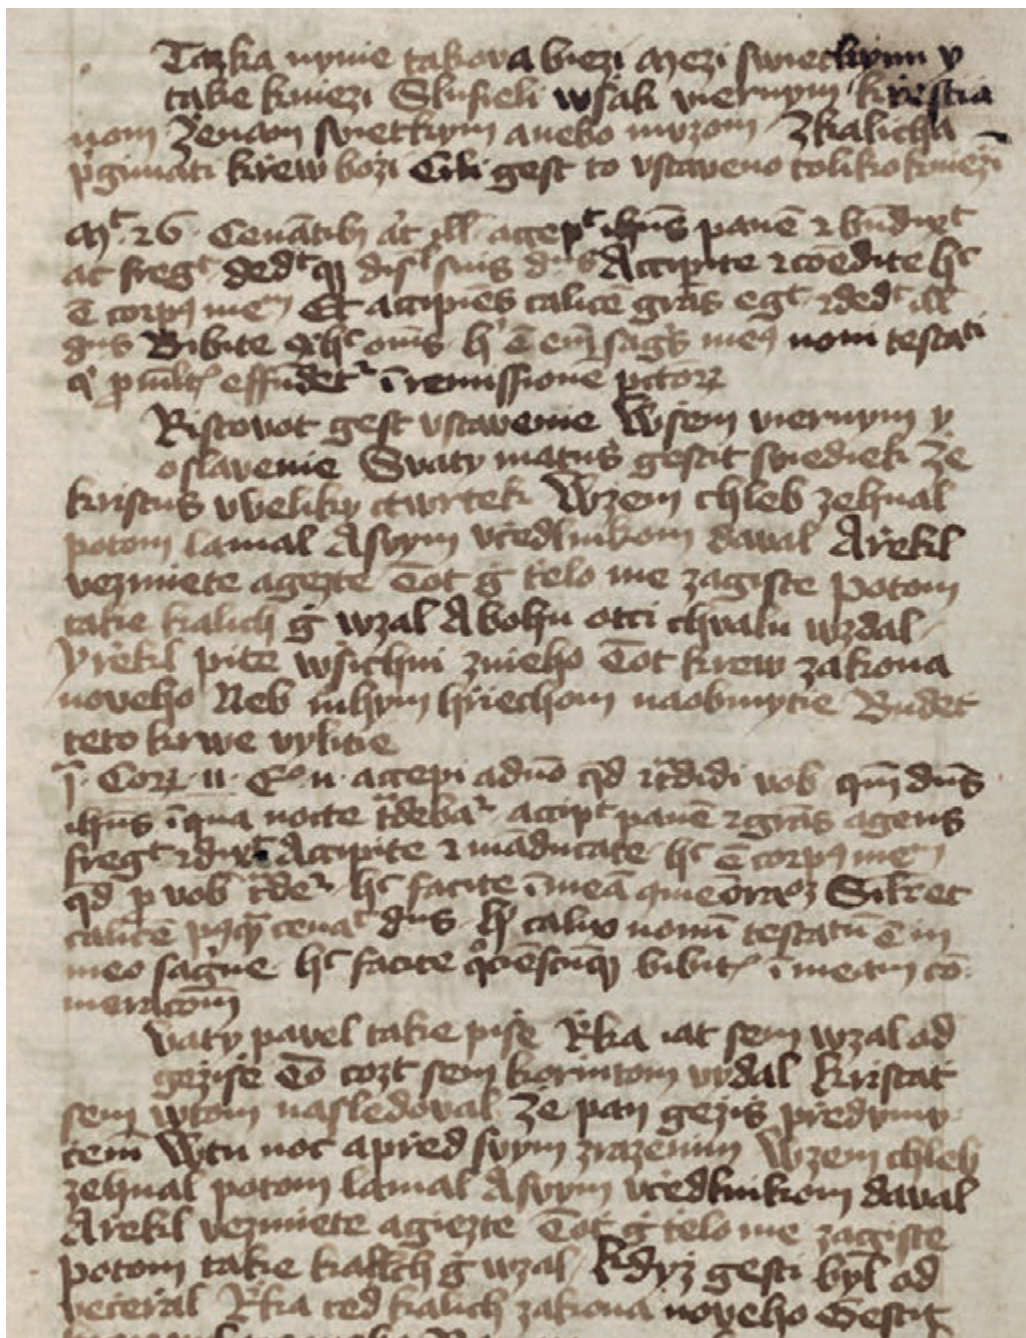 Tazka nynie takova biezi Mezi swietskymi y
take kniezi Slusieli wssak viernym krestia
nom Ženam swetskym anebo muzom Zkalicha
prigimati krew bozi Čili gest to vstaveno toliko kniezi
Mt 26 Cenātibus at ill accept ihūs panē et bndixt
ac fregt dedt q discl suis dices Accipite et comedite hc
ē corpus meum Et accipiēs calicē gras egt et dedt ill
dices Bibite ex hc oms hc ē em sags meus noui testati
q p mult effūdetr ī remissionē pctorum
Kristovot gest vstavenie Wssem viernym y
oslavenie Svaty matus gestit swiediek že
kristus vveliky ctwrtek Wzem chleb zehnal
potom lamal Asvym vcedlnikom daval Arekl
vezmiete agezte Tot g telo me zagiste Potom
take kalich g wzal Abohu otci chvalu wzdal
Yrekl pite wsichni znieho Tot krew zakona
noveho Neb mhym hriechom naobmytie Budet
teto krwe vylitie
I Cor 11 Eo n accepi adno qd et tdidi vob qm dūs
ihus ī qua nocte tdebar accipt panē et gras agens
fregt et dixt Accipite et māducate hc ē corpus meum
qd p vob tdetr hc facite ī meā Silr et
calicē pqm cenat dices hic calix nouū testatū ē in
meo sagne hc facite qcienscunq bibitis ī meam co
mem̄acom
Svaty pavel take pisse Rka iat sem wzal od
gezisse To cozt sem korintom vydal Kristat
sem wtom nasledoval Ze pan gezis pred
tem Wtu noc apred svym zrazenim Wzem chleb
zehnal potom lamal Asvym vcedlnikom daval
Arekl vezmiete agiezte Tot g telo me zagiste
potom take kalich g wzal Kdyz gesti byl od
veceral Rka ted kalich zakona noveho Gestit